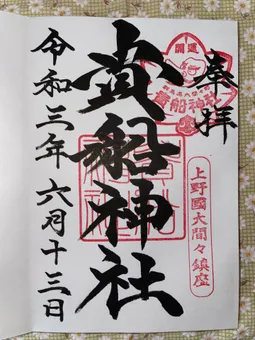 奉拝
開運
貴船神社
上野國大間々鎮座
貴船神社
令和三年六月十三日